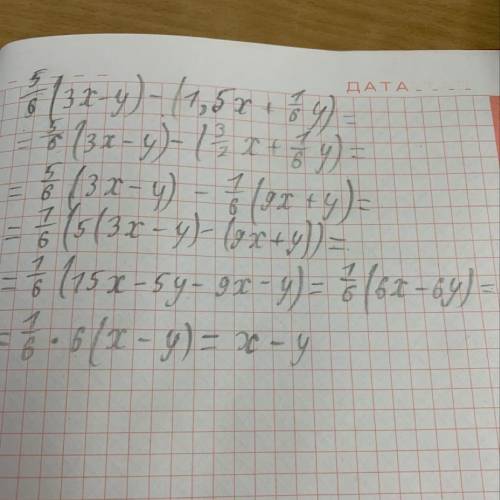 ДАТА
5/6(3x-y)-(1,5x+1/6y)=
=5/6(3x-y)-(3/2x+1/6y)=
=5/6(3x-y)-1/6(9x+y)=
=1/6(5(3x-y)-(9x+y))=
=1/6(15x-5y-9x-y)=1/6(6x-6y)=
=1/6·6(x-y)=x-y